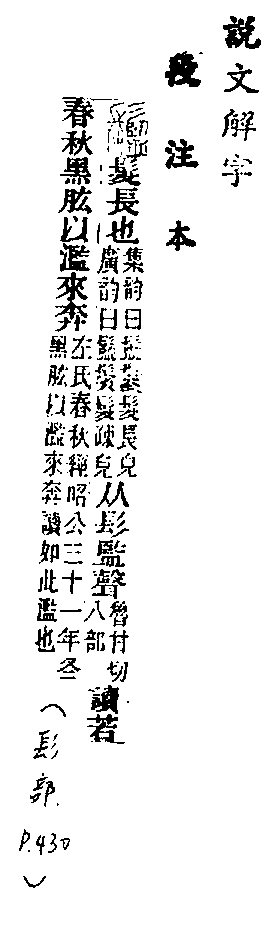 說文解字
段注本
髮長也集韵曰髮長皃廣韵曰髮疎皃从髟監聲魯甘切八部讀若
春秋黑肱以濫來奔左氏春秋經昭公三十一年冬黑肱以濫來奔讀如此濫也
（髟部 P.430）